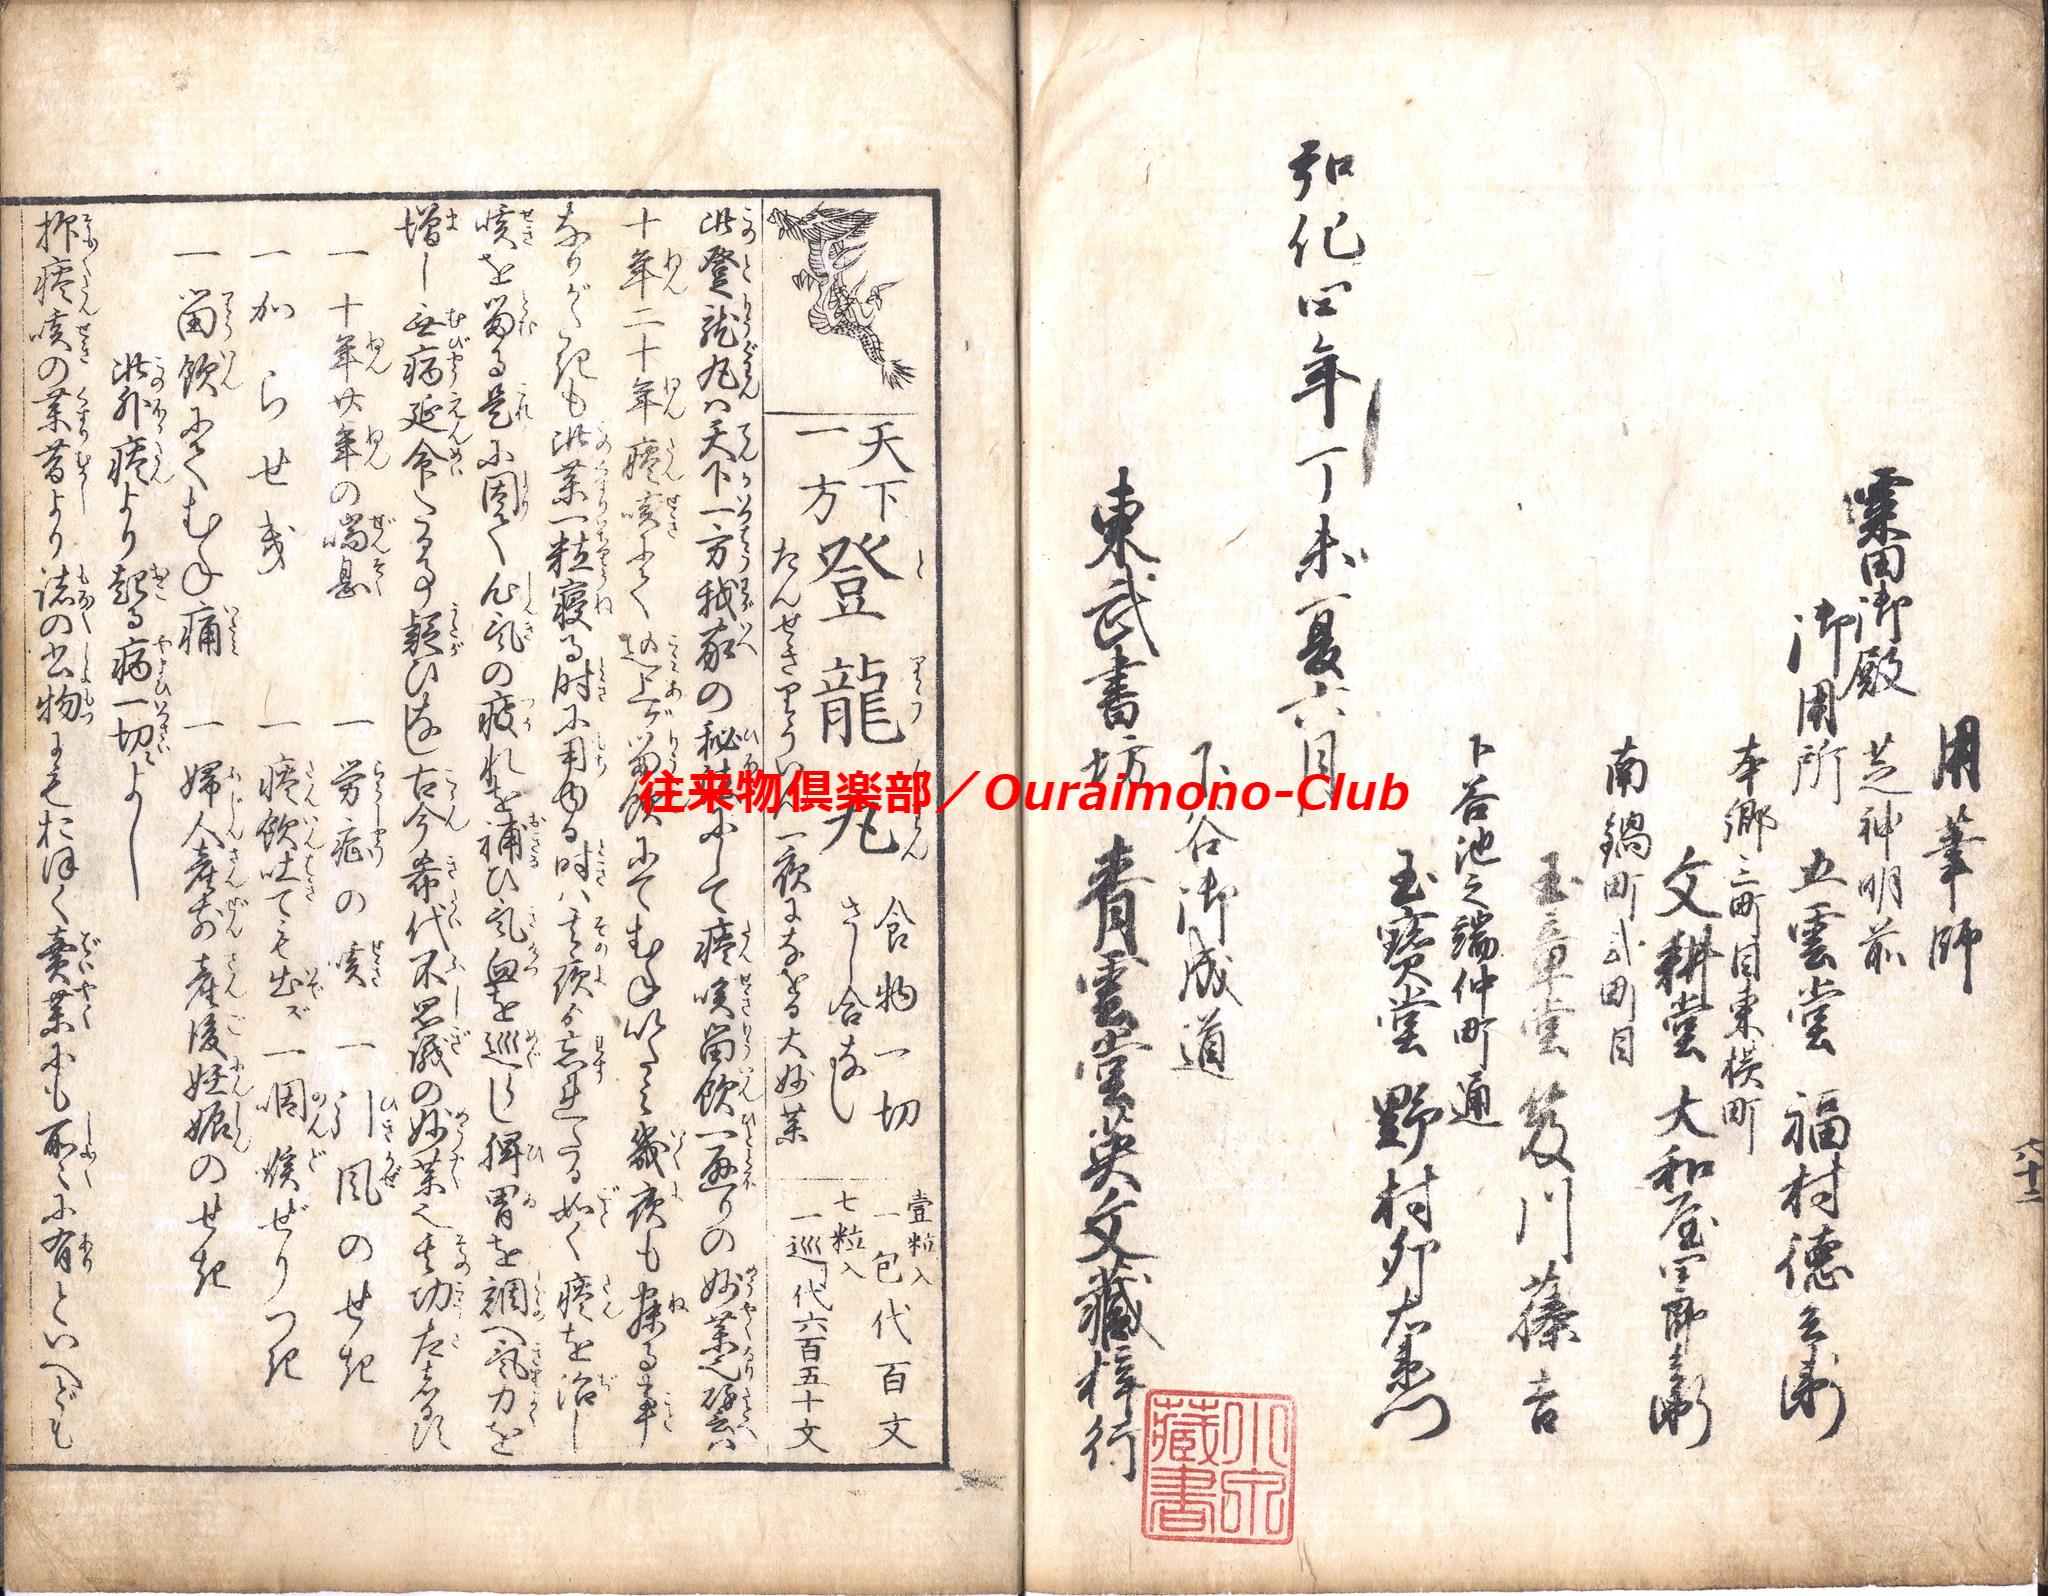 用筆師
粟田御殿
御用所
芝神明前
五雲堂 福村徳兵衛
本郷三町目東横町
文耕堂 大和屋四郎兵衛
南鍋町弐町目
玉章堂 笈川藤吉
下谷池之端仲町通
玉寶堂 野村卯右衛門
弘化四年丁未夏六月
下谷御成道
東武書坊 青雲堂英文藏梓行
六十二
小泉藏書
往来物倶楽部／Ouraimono-Club
天下一方 登龍丸 食物一切さし合なし
たんせきりういん一夜になをる大妙薬
壹粒入一包代百文
七粒入一巡り代六百五十文
此登龍丸ハ天下一方我家の秘法にして痰咳留飲一通りの妙薬也譬ハ
十年二十年痰咳にて込上ゲ留飲にてむねいたミ幾夜も寐る事
なりがたきも此薬一粒寝る時に用ゆる時ハ其夜より忘れたる如く痰を治し
咳を留る是に因て心気の疲れを補ひ気血を巡らし脾胃を調へ気力を
増し無病延命たる事疑ひなし古今希代不思議の妙薬也其功左に記す
一 十年廿年の喘息 一 労症の咳 一 引風のせき
一 からせき 一 痰飲吐ても出ズ 一 咽喉ぜりつき
一 留飲にてむね痛 一 婦人産前産後妊娠のせき
此外痰より起る病一切によし
抑痰咳の薬昔より諸の書物にもおほく賣薬にも所々に有といへども